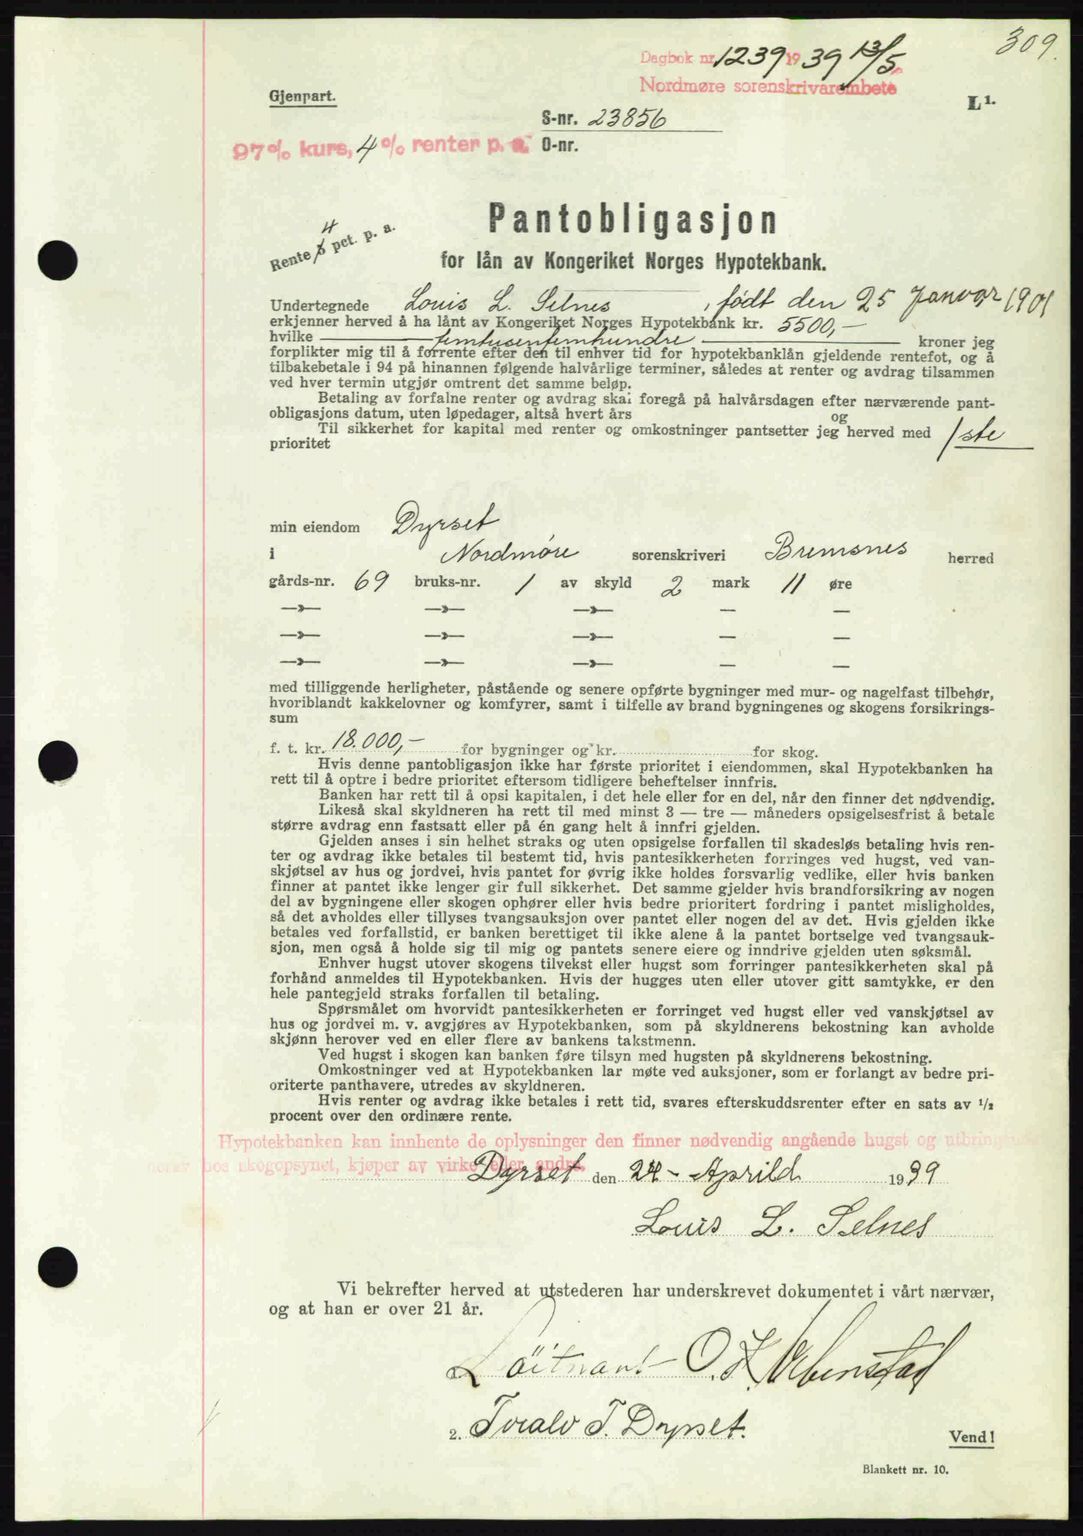 309.
Dagbok nr. 1239 1939 13/5.
Nordmøre sorenskrivarembete
Gjenpart.
L 1.
S-nr. 23856
97% kurs, 4% renter p. a. O-nr.
Pantobligasjon
4
Rente 5 pct. p. a.
for lån av Kongeriket Norges Hypotekbank.
Undertegnede Louis L. Selnes, født den 25 Januar 1901
erkjenner herved å ha lånt av Kongeriket Norges Hypotekbank kr. 5500,-
hvilke femtusenfemhundre kroner jeg
forplikter mig til å forrente efter den til enhver tid for hypotekbanklån gjeldende rentefot, og å
tilbakebetale i 94 på hinannen følgende halvårlige terminer, således at renter og avdrag tilsammen
ved hver termin utgjør omtrent det samme beløp.
Betaling av forfalne renter og avdrag skal foregå på halvårsdagen efter nærværende pant-
obligasjons datum, uten løpedager, altså hvert års og
Til sikkerhet for kapital med renter og omkostninger pantsetter jeg herved med 1ste
prioritet
min eiendom Dyrset
i Nordmøre sorenskriveri Bremsnes herred
gårds-nr. 69 bruks-nr. 1 av skyld 2 mark 11 øre
—»— —»— —»— — —
—»— —»— —»— — —
—»— —»— —»— — —
med tilliggende herligheter, påstående og senere opførte bygninger med mur- og nagelfast tilbehør,
hvoriblandt kakkelovner og komfyrer, samt i tilfelle av brand bygningenes og skogens forsikrings-
sum
f. t. kr. 18.000,- for bygninger og kr. for skog.
Hvis denne pantobligasjon ikke har første prioritet i eiendommen, skal Hypotekbanken ha
rett til å optre i bedre prioritet eftersom tidligere beheftelser innfris.
Banken har rett til å opsi kapitalen, i det hele eller for en del, når den finner det nødvendig.
Likeså skal skyldneren ha rett til med minst 3 — tre — måneders opsigelsesfrist å betale
større avdrag enn fastsatt eller på én gang helt å innfri gjelden.
Gjelden anses i sin helhet straks og uten opsigelse forfallen til skadesløs betaling hvis ren-
ter og avdrag ikke betales til bestemt tid, hvis pantesikkerheten forringes ved hugst, ved van-
skjøtsel av hus og jordvei, hvis pantet for øvrig ikke holdes forsvarlig vedlike, eller hvis banken
finner at pantet ikke lenger gir full sikkerhet. Det samme gjelder hvis brandforsikring av nogen
del av bygningene eller skogen ophører eller hvis bedre prioritert fordring i pantet misligholdes,
så det avholdes eller tillyses tvangsauksjon over pantet eller nogen del av det. Hvis gjelden ikke
betales ved forfallstid, er banken berettiget til ikke alene å la pantet bortselge ved tvangsauk-
sjon, men også å holde sig til mig og pantets senere eiere og inndrive gjelden uten søksmål.
Enhver hugst utover skogens tilvekst eller hugst som forringer pantesikkerheten skal på
forhånd anmeldes til Hypotekbanken. Hvis der hugges uten eller utover gitt samtykke, er den
hele pantegjeld straks forfallen til betaling.
Spørsmålet om hvorvidt pantesikkerheten er forringet ved hugst eller ved vanskjøtsel av
hus og jordvei m. v. avgjøres av Hypotekbanken, som på skyldnerens bekostning kan avholde
skjønn herover ved en eller flere av bankens takstmenn.
Ved hugst i skogen kan banken føre tilsyn med hugsten på skyldnerens bekostning.
Omkostninger ved at Hypotekbanken lar møte ved auksjoner, som er forlangt av bedre pri-
oriterte panthavere, utredes av skyldneren.
Hvis renter og avdrag ikke betales i rett tid, svares efterskuddsrenter efter en sats av 1/2
procent over den ordinære rente.
Hypotekbanken kan innhente de oplysninger den finner nødvendig angående hugst og utbring
hos skogopsynet, kjøper av virke eller andre.
Dyrset den 24 - Aprild 1939
Louis L. Selnes
Vi bekrefter herved at utstederen har underskrevet dokumentet i vårt nærvær,
og at han er over 21 år.
Löitnant O. K.
2. Torald T. Dyrset.
Vend!
Blankett nr. 10.